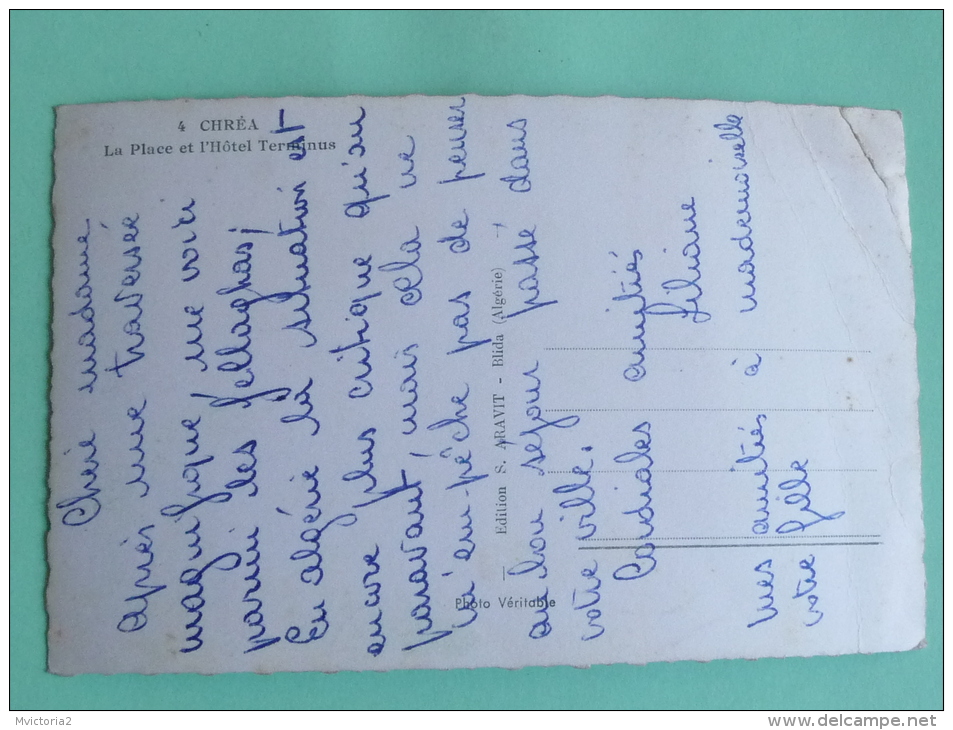 4 CHRÉA
La Place et l'Hôtel Terminus
Chère madame
après une traversée
magnifique, me voici
parmi les fellaghas;
En algérie la situation est
encore plus critique qu'au
paravant, mais cela ne
m'em-pêche pas de penser
au bon séjour passé dans
votre ville.
Cordiales amitiés
Liliane
mes amitiés à mademoiselle
votre fille
Edition S. ARAVIT - Blida (Algérie)
Photo Véritable
Mvictoria2
www.delcampe.net